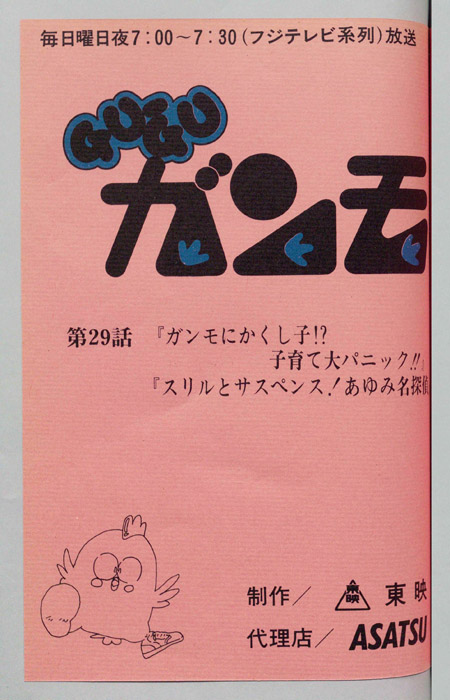 毎日曜日夜7:00〜7:30(フジテレビ系列)放送
GUGU
ガンモ
第29話 『ガンモにかくし子!?
子育て大パニック!!』
『スリルとサスペンス!あゆみ名探偵
制作/ 東映 東映
代理店/ ASATSU